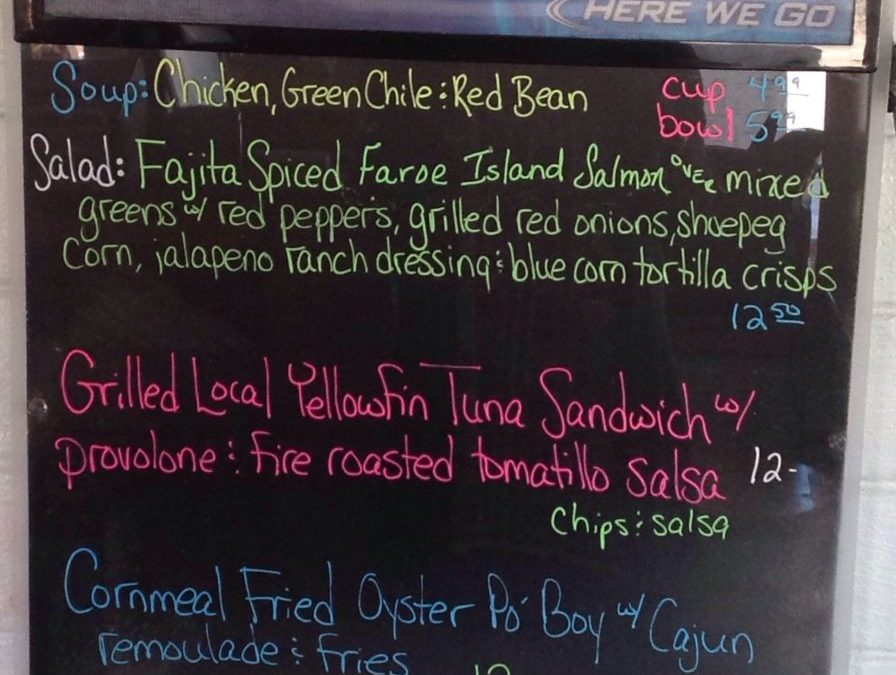 HERE WE GO
Soup: Chicken, Green Chile & Red Bean cup 4.99
bowl 5.99
Salad: Fajita Spiced Faroe Island Salmon over mixed
greens w/ red peppers, grilled red onions, shoepeg
corn, jalapeno ranch dressing & blue corn tortilla crisps
12 50
Grilled Local Yellowfin Tuna Sandwich w/
provolone & fire roasted tomatillo salsa 12-
chips & salsa
Cornmeal Fried Oyster Po' Boy w/ Cajun
remoulade & fries